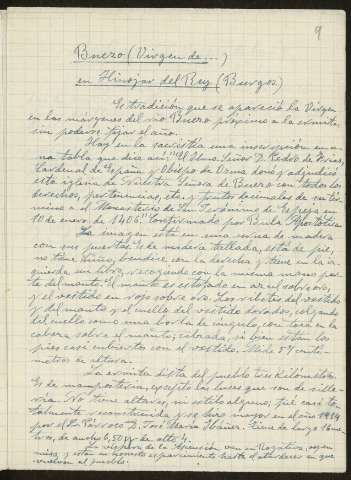 9
Bnezo (Virgen de...)
en Hinojar del Rey (Burgos)
Es tradición que se apareció la Virgen
en las márgenes del río Bnezo próximo a la ermita,
sin poderse fijar el año.
Hay en la sacristía una inscripción en u-
na tabla que dice así: "El Ilmo. Señor D. Pedro de Frías,
Cardenal de España y Obispo de Osma donó y adjudicó
esta iglesia de Nuestra Señora de Bnezo con todos los
derechos, pertenencias, etc y frutos decimales de su tér-
mino al Monasterio de San Jerónimo de Espeja en
10 de enero de 1406. Confirmado por Bula Apostólica
La imagen está en una urna de madera
con sus puertas. Es de madera tallada, está de pie,
no tiene Niño, bendice con la derecha y tiene en la iz-
quierda un libro, recogiendo con la misma mano par-
te del manto. El manto es estofado en azul sobre oro,
y el vestido en rojo sobre oro. Los ribetes del vestido
y del manto y el cuello del vestido dorados, colgando
del cuello como una borla de cíngulo, con toca en la
cabeza sobre el manto; calzada, si bien están los
pies casi cubiertos con el vestido. Mide 54 centí-
metros de altura.
La ermita dista del pueblo tres kilómetros.
Es de mampostería, excepto las luces que son de sille-
ría. No tiene altares, ni retablo alguno, fué casi to-
talmente reconstruida y se hizo mayor en el año 1914
por el Sr. Párroco D. José María Ibáñez. Tiene de largo
de ancho 6,50 y de alto 4.
La víspera de la Ascensión van en Rogativa,
misa, y están en honesto esparcimiento hasta el atardecer en que
vuelven al pueblo.